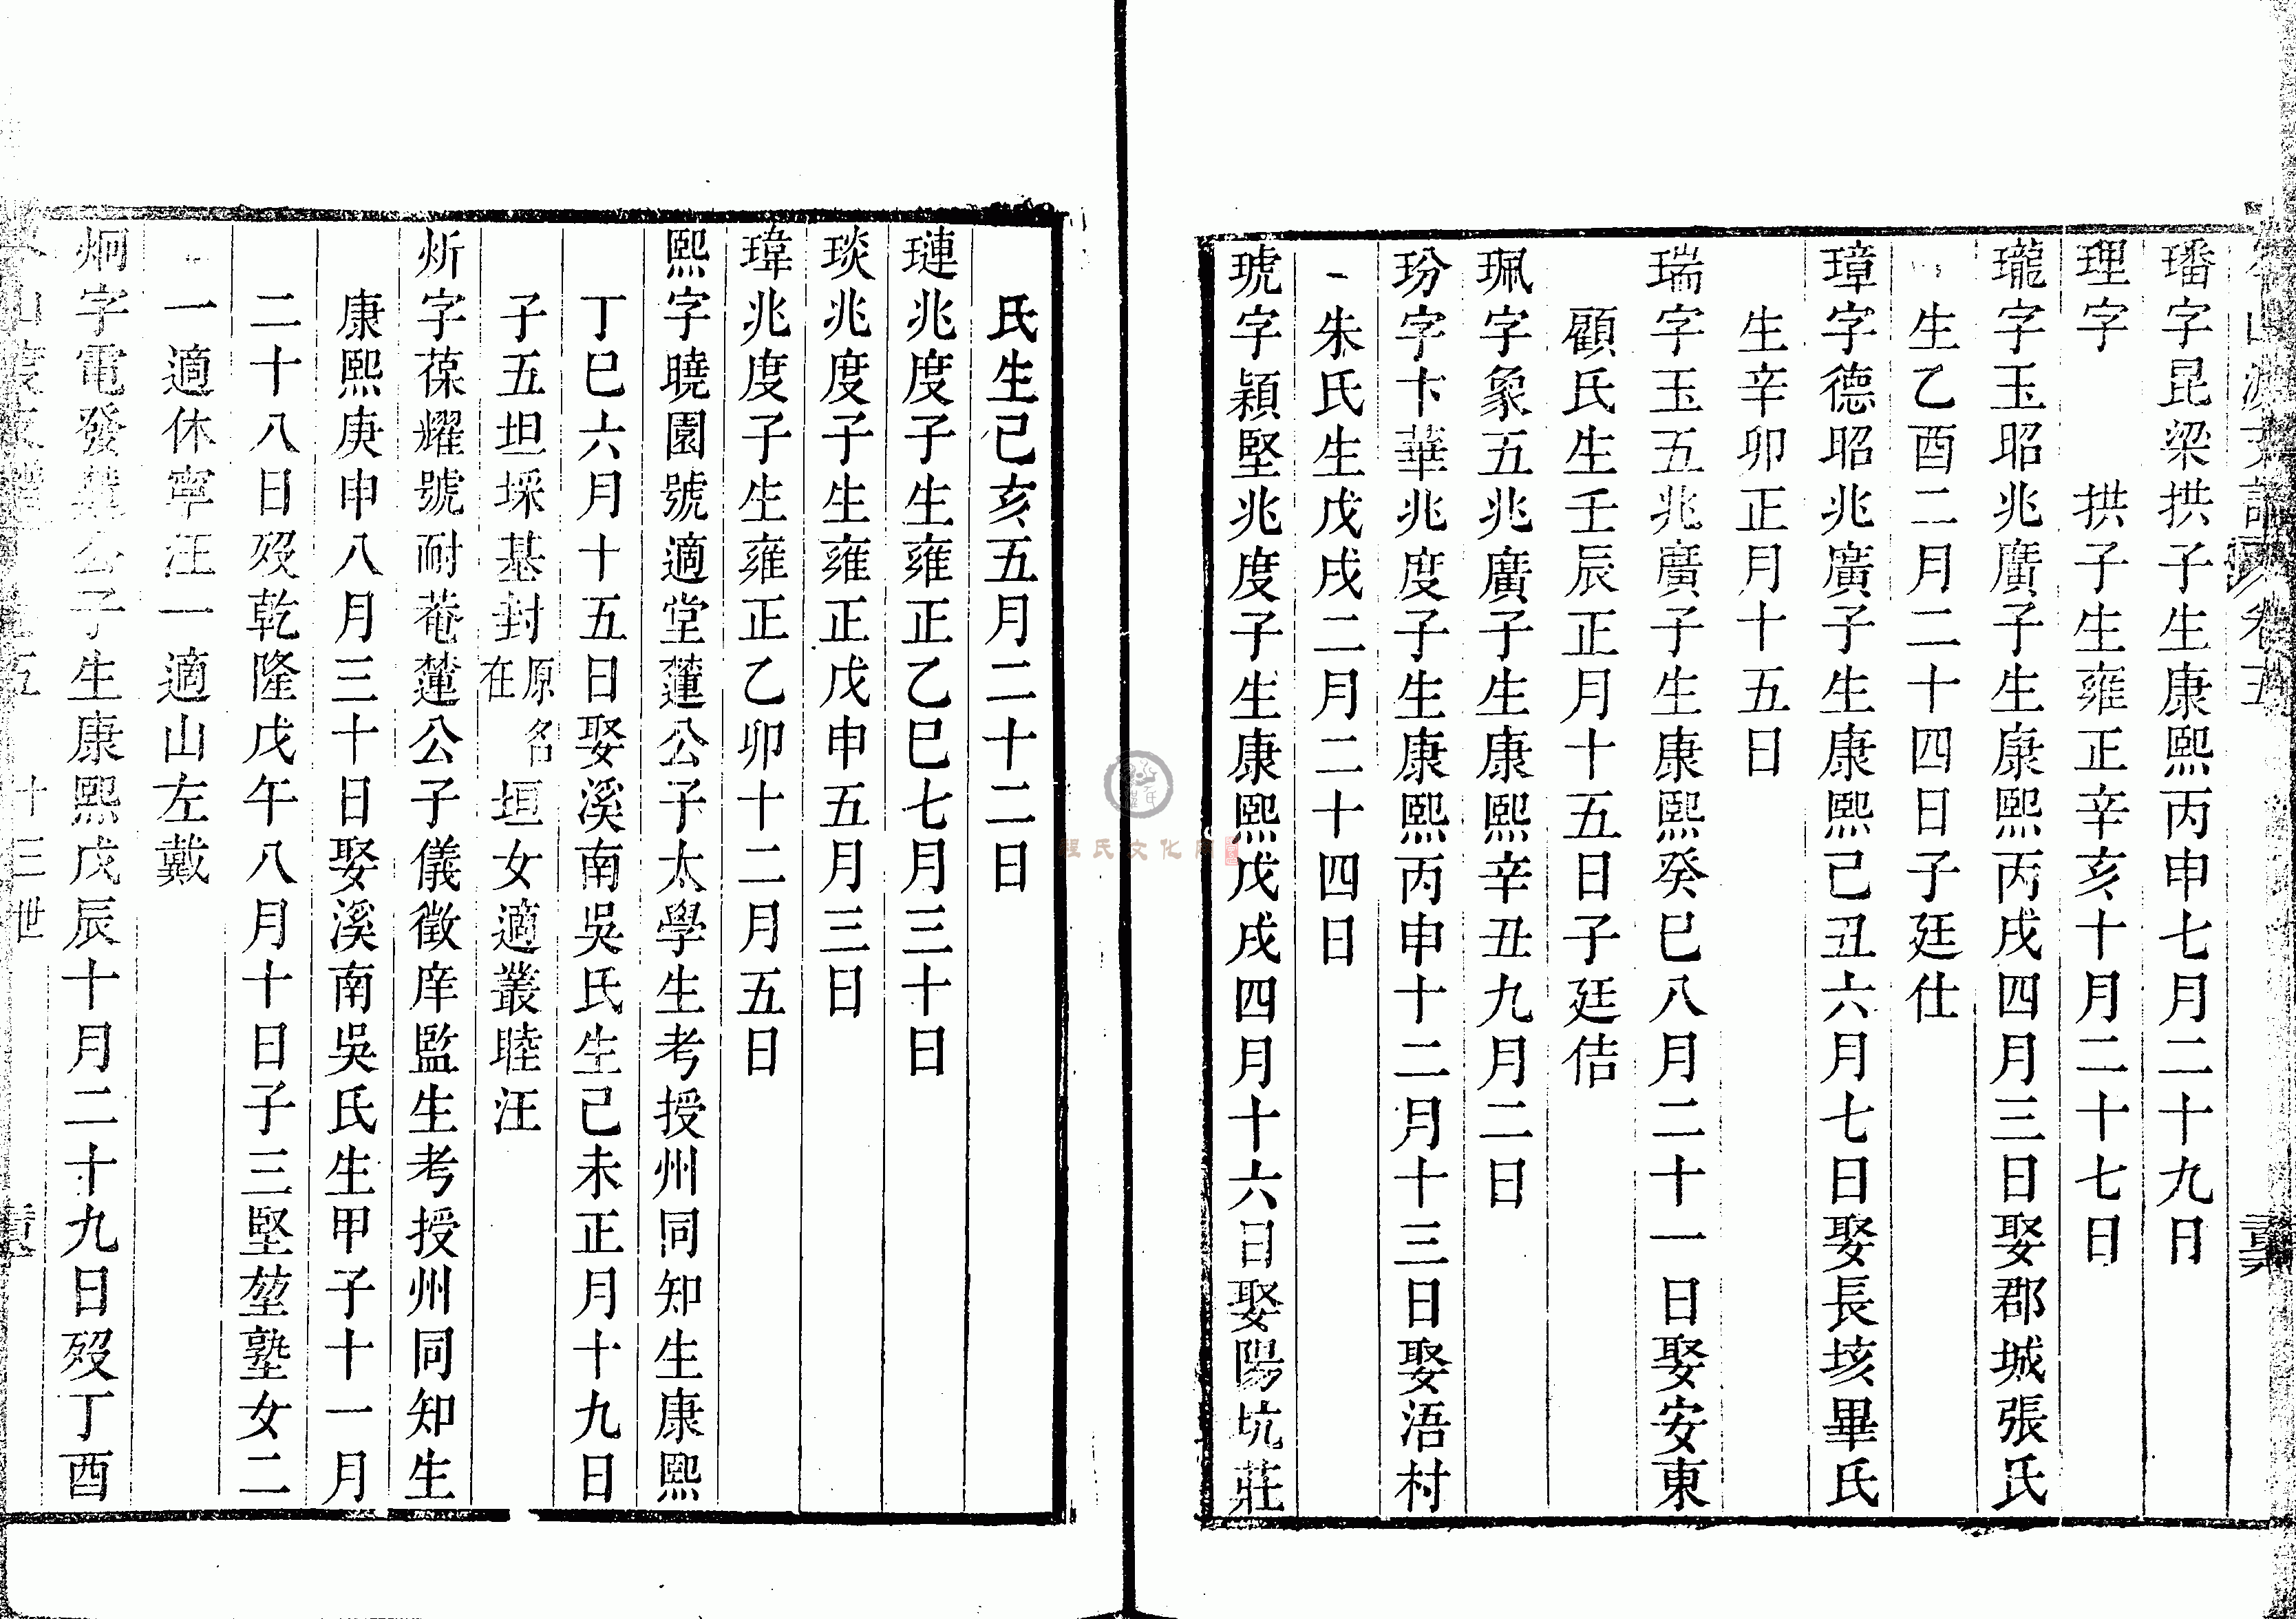 璠字昆梁拱子生康熙丙申七月二十九日
理字　　拱子生雍正辛亥十月二十七日
瓏字玉昭兆廣子生康熙丙戌四月三日娶郡城張氏
生乙酉二月二十四日子廷仕
璋字德昭兆廣子生康熙己丑六月七日娶長垓畢氏
生辛卯正月十五日
瑞字玉五兆廣子生康熙癸巳八月二十一日娶安東
顧氏生壬辰正月十五日子廷佶
珮字象五兆廣子生康熙辛丑九月二日
玢字卞華兆度子生康熙丙申十二月十三日娶浯村
朱氏生戊戌二月二十四日
琥字潁堅兆度子生康熙戊戌四月十六日娶陽坑莊
氏生己亥五月二十二日
璉兆度子生雍正乙巳七月三十日
琰兆度子生雍正戊申五月三日
瑋兆度子生雍正乙卯十二月五日
熙字曉園號適堂蓮公子太學生考授州同知生康熙
丁巳六月十五日娶溪南吳氏生己未正月十九日
子五坦埰基封原名在垣女適叢睦汪
炘字葆耀號耐菴蓮公子儀徵庠監生考授州同知生
康熙庚申八月三十日娶溪南吳氏生甲子十一月
二十八日歿乾隆戊午八月十日子三堅堃塾女二
一適休寧汪一適山左戴
炯字電發蓮公子生康熙戊辰十月二十九日歿丁酉
十三世
程氏文化網